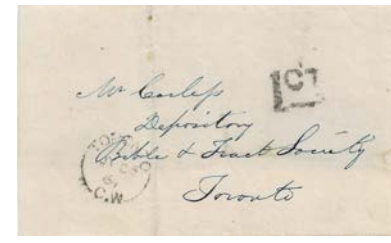 Mr Carless
Depository
Bible & Tract Society
Toronto
C.W.